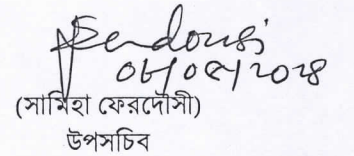 Ferdousi
০৮/০৫/২০২৪
(সামিহা ফেরদৌসী)
উপসচিব